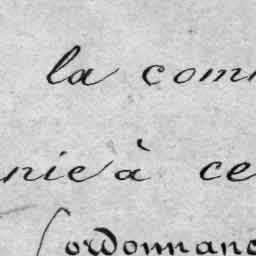 la comm
nie à ce
ordonnanc